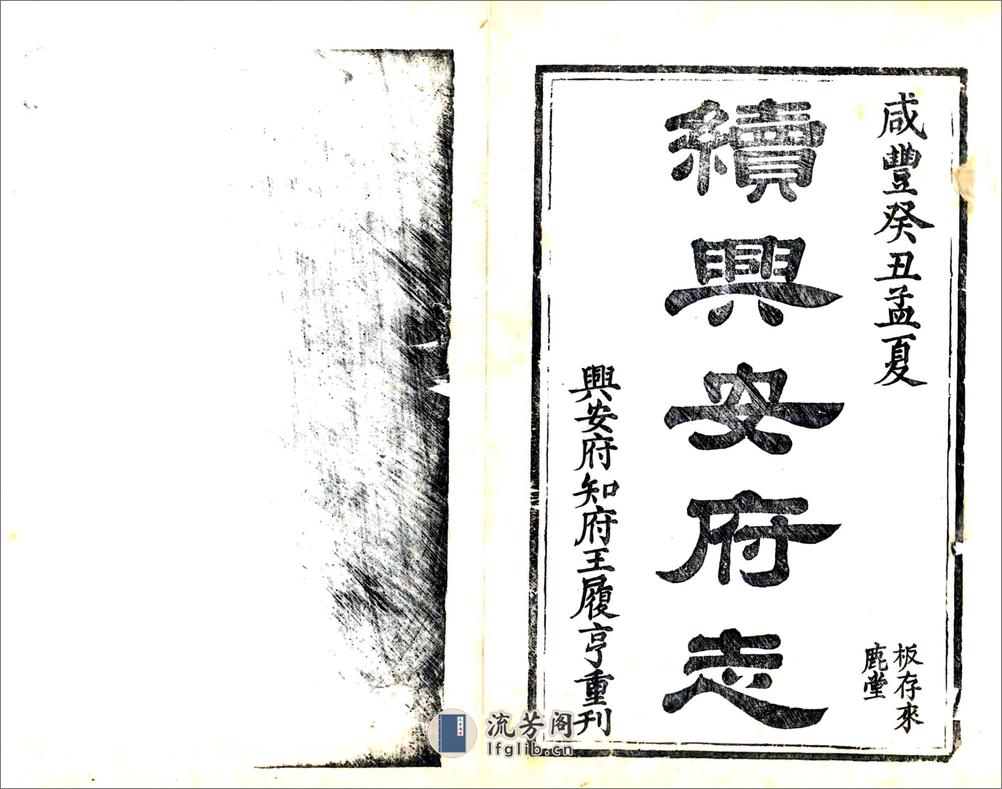 咸豐癸丑孟夏
板存來
鹿堂
續興安府志
興安府知府王履亨重刊
流芳阁
lfglib.cn